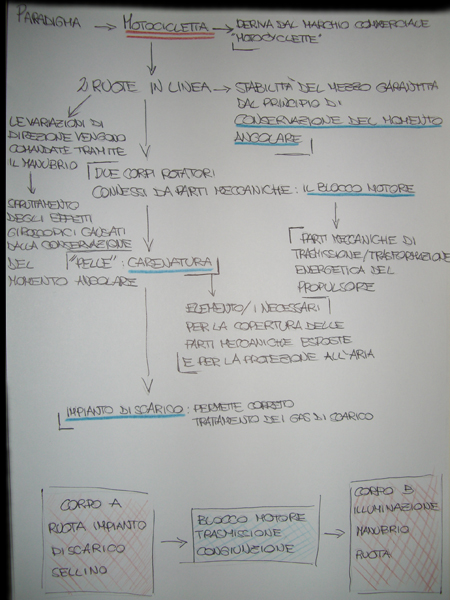 PARADIGMA → MOTOCICLETTA → DERIVA DAL MARCHIO COMMERCIALE
"MOTOCYCLETTE"
2) RUOTE IN LINEA → STABILITÀ DEL MEZZO GARANTITA
DAL PRINCIPIO DI
CONSERVAZIONE DEL MOMENTO
ANGOLARE
LE VARIAZIONI DI
DIREZIONE VENGONO
COMANDATE TRAMITE
IL MANUBRIO
DUE CORPI ROTATORI
CONNESSI DA PARTI MECCANICHE: IL BLOCCO MOTORE
SFRUTTAMENTO
DEGLI EFFETTI
GIROSCOPICI CAUSATI
DALLA CONSERVAZIONE
DEL
MOMENTO ANGOLARE
"PELLE": CARENATURA
PARTI MECCANICHE DI
TRASMISSIONE/TRASFORMAZIONE
ENERGETICA DEL
PROPULSORE
ELEMENTO/I NECESSARI
PER LA COPERTURA DELLE
PARTI MECCANICHE ESPOSTE
E PER LA PROTEZIONE ALL'ARIA
IMPIANTO DI SCARICO: PERMETTE CORRETTO
TRATTAMENTO DEI GAS DI SCARICO
CORPO A
RUOTA IMPIANTO
DI SCARICO
SELLINO
BLOCCO MOTORE
TRASMISSIONE
CONGIUNZIONE
CORPO B
ILLUMINAZIONE
MANUBRIO
RUOTA